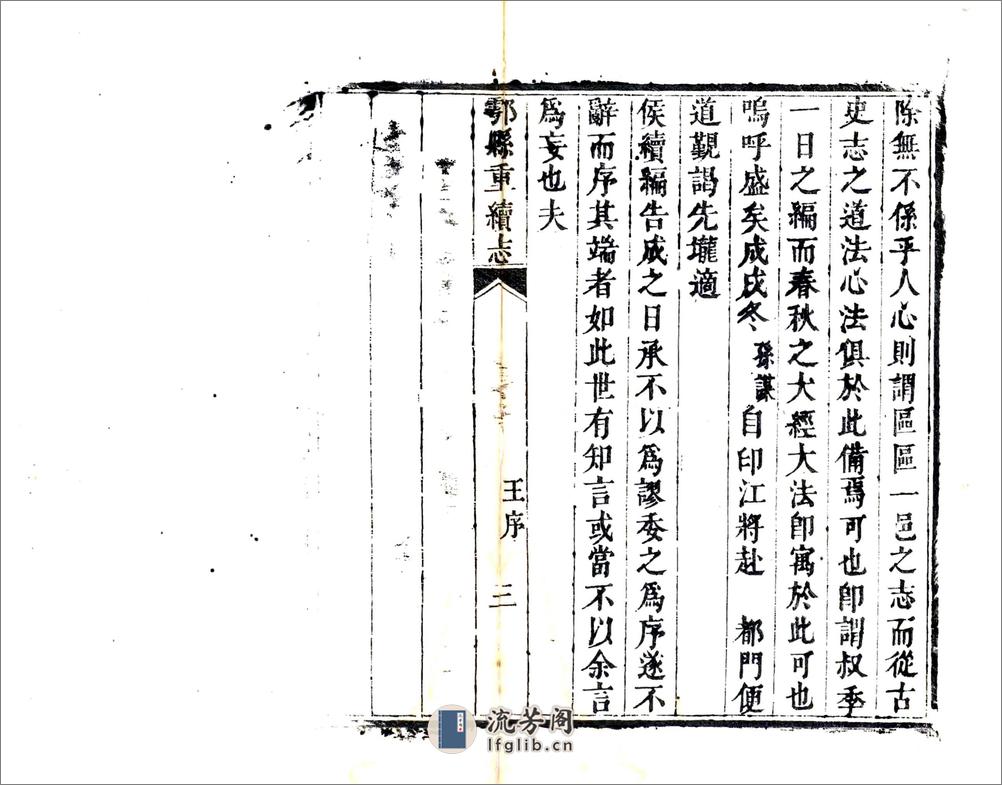 除無不係乎人心則謂區區一邑之志而從古
史志之道法心法俱於此備焉可也卽謂叔季
一日之編而春秋之大經大法卽寓於此可也
嗚呼盛矣戊戌冬孫謀自印江將赴　都門便
道覲謁先壠適
侯續編告成之日承不以爲謬委之爲序遂不
辭而序其端者如此世有知言或當不以余言
爲妄也夫
鄠縣重續志　王序　三
流芳阁
lfglib.cn